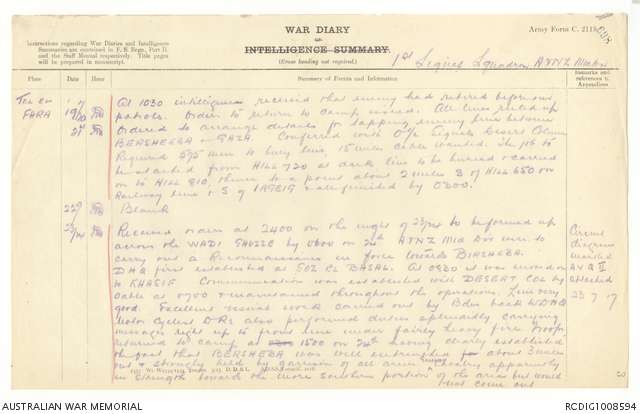 WAR DIARY
or
INTELLIGENCE SUMMARY.
(Erase heading not required).
Army Form C. 2118.
Instructions regarding War Diaries and Intelligence
Summaries are contained in F. S. Regs., Part II.
and the Staff Manual respectively. Title pages
will be prepared in manuscript.
1st Signal Squadron, A & NZ Mtd Divn
Place
Date
Summary of Events and Information
Remarks and references to Appendices
Tel el FARA
At 1030 intelligence received that enemy had retired before our
patrols. Order to return to camp issued. All lines reeled up
21st Ordered to arrange details for tapping enemy line between
BERSHEEBA & GAZA. Conferred with O/c Signals Desert Column
Required 575 men to bury line, 15 miles cable wanted. The job to
be started from HILL 720 at dark line to be buried & carried
on to HILL 810, thence to a point about 2 miles S of HILL 650 on
Railway line & S of IRGEIG & be finished by 0200.
22nd Blank
Received orders at 2400 on the night of 23/24 to be formed up
across the WADI GHUZZE by 0400 on 24th A & NZ Mtd Div were to
carry out a Reconnaissance in force towards BIRSHEBA.
DHQ first established at 502 EL BASAL. At 0930 it was moved on
to KHASIF Communication was established with DESERT COL by
Cable at 0700 & maintained throughout the operations. Line very
good. Excellent visual work carried out by Bdes back to DHQ
Motor Cyclist D.Rs also performed duties splendidly carrying
messages right up to front line under fairly heavy fire. Troops
returned to camp at 1500 on 24th having clearly established
the fact that BERSHEEBA was well entrenched for about 3 miles
out & strongly held by garrison of all arms. Enemy Cavalry apparently
in strength towards the more southern portion of the area but would
not come out
Circuit
diagram
marked
AVA II
attached
23.7.17
AUSTRALIAN WAR MEMORIAL
RCDIG1008594